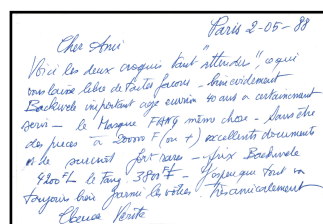 Paris 2-05-88
Cher Ami
Voici les deux croquis tant "attendus", ce qui
vous laisse libre de toutes façons - bien évidemment
Backwele important age environ 40 ans a certainement
servi - le Masque FANG même chose - Sans être
des pièces à 20000 F (ou +) excellents documents
et le surcout fort rares - prix Backwele
4200 F - le Fang 3800 F - J'espère que tout va
toujours bien parmi les vôtres Très amicalement